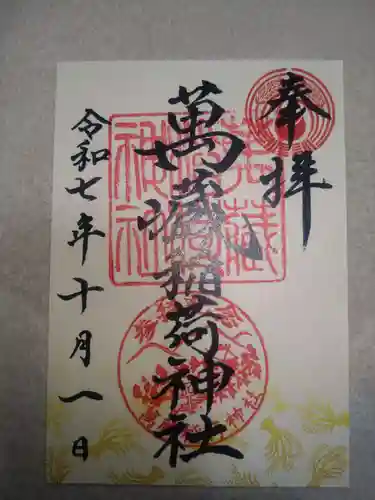 奉拝
萬蔵稲荷神社
令和七年十月一日